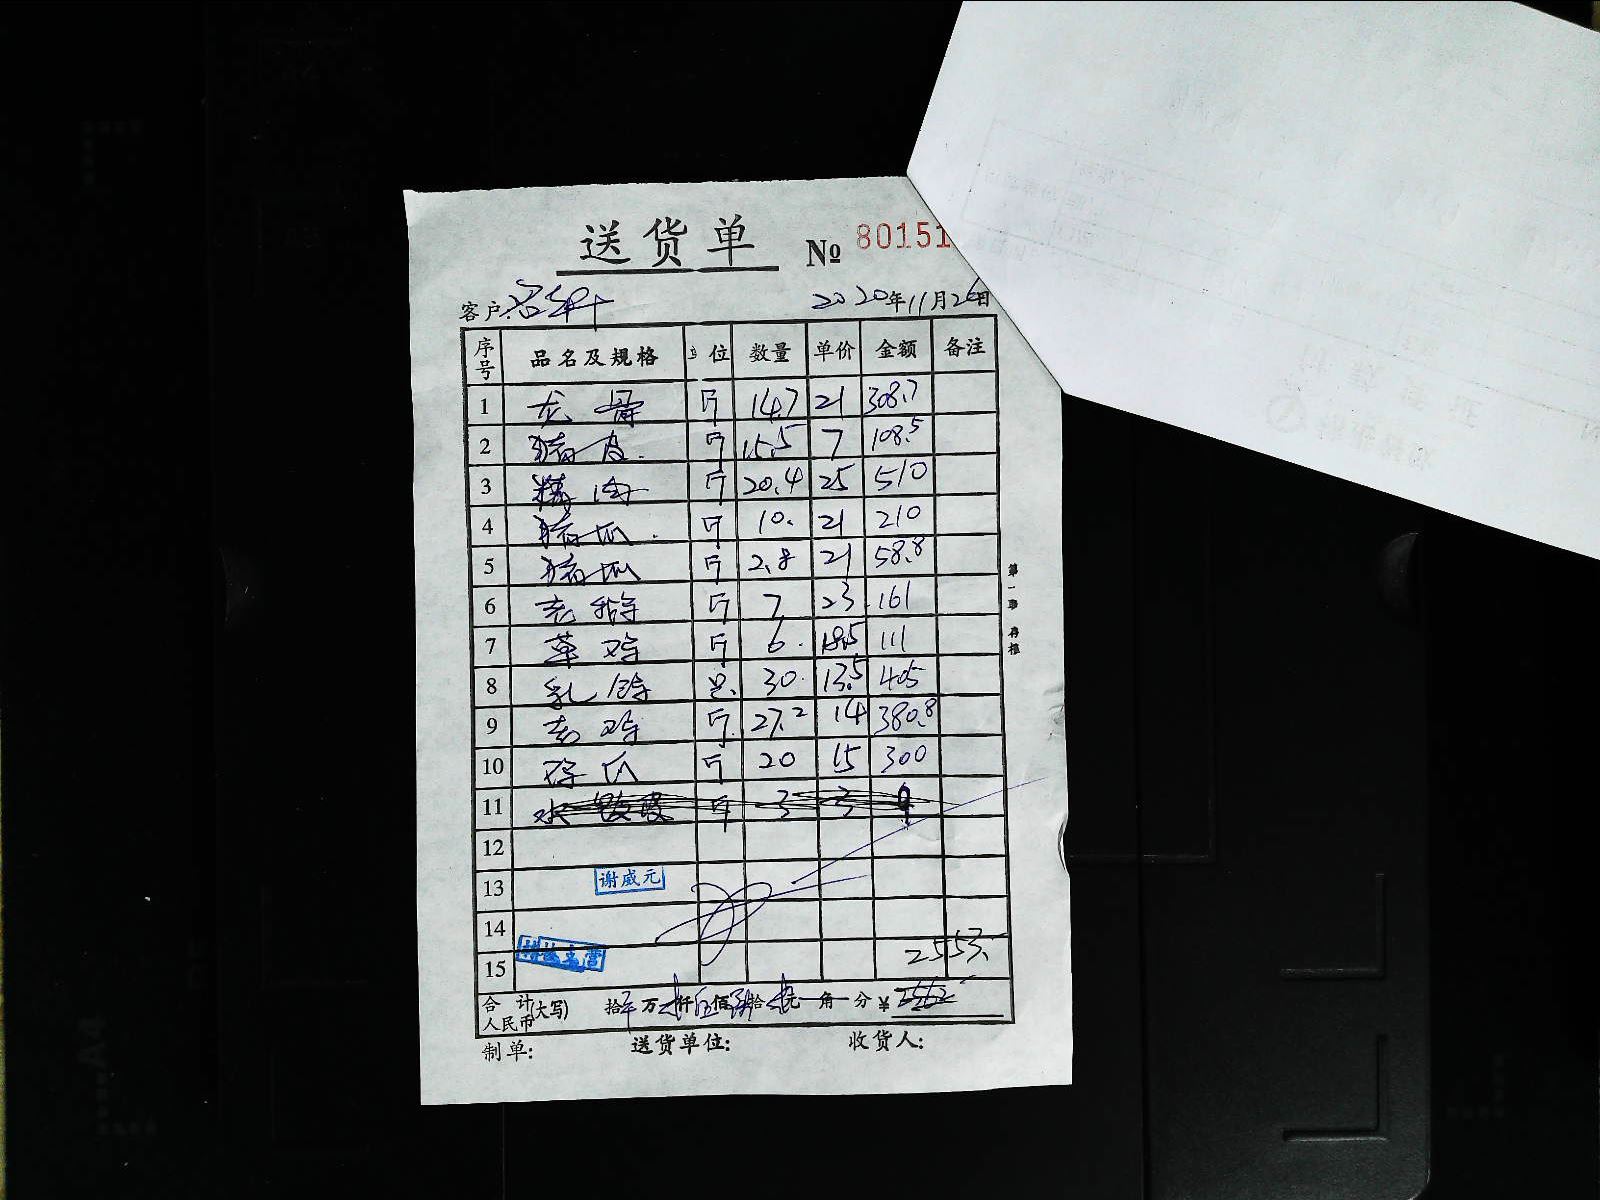 送货单 № 80151
客户: 2020年11月26日
序号 品名及规格 单位 数量 单价 金额 备注
1 龙骨 斤 14.7 21 308.7
2 猪皮 斤 15.5 7 108.5
3 精肉 斤 20.4 25 510
4 猪爪 斤 10. 21 210
5 猪爪 斤 2.8 21 58.8
6 斤 7 23 161
7 草鸡 斤 6 18.5 111
8 乳鸽 只 30 13.5 405
9 老鸡 斤 27.2 14 380.8
10 爪 斤 20 15 300
11 水 斤 3 3 9
12
13 谢威元
14
15 2553.
合计人民币(大写) 拾 万 仟伍佰 拾 元 角 分 ¥ 2562
制单: 送货单位: 收货人:
第一联 存根